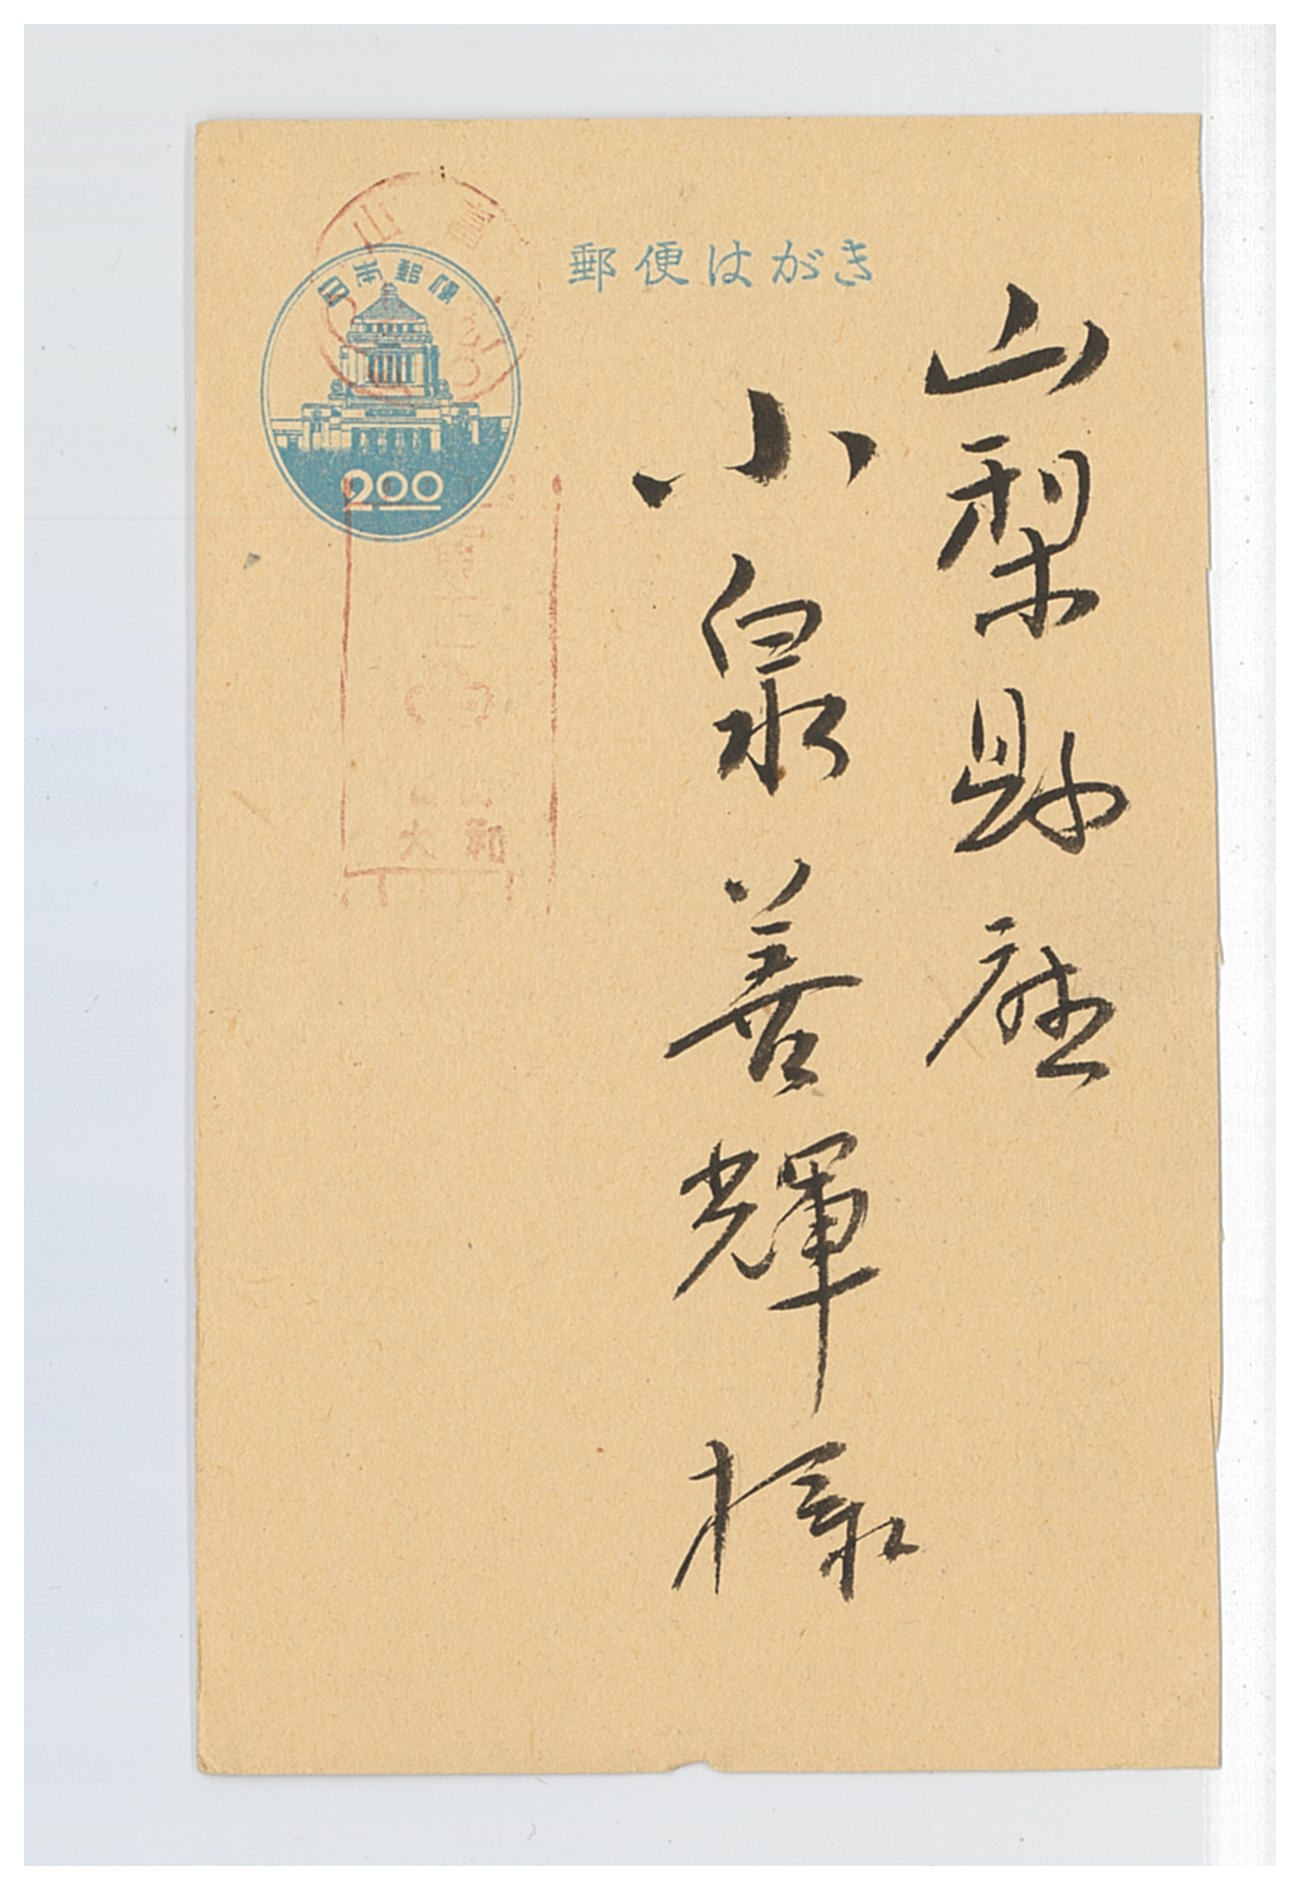 郵便はがき
日本郵便
2.00
山梨縣庁
小泉善輝様
富山
大和